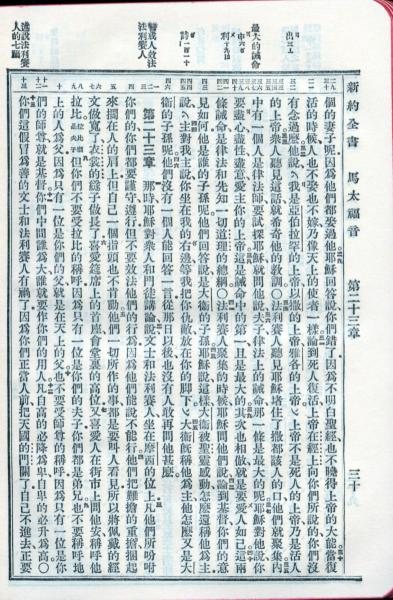 新約全書 馬太福音 第二十三章 三十
個的妻子呢因爲他們都娶過他耶穌回答說你們錯了因爲不明白聖經也不曉得上帝的大能當復
活的時候人也不娶也不嫁乃像天上的使者一樣論到死人復活上帝在經上向你們所說的你們沒
有念過麼他說我是亞伯拉罕的上帝以撒的上帝雅各的上帝上帝不是死人的上帝乃是活人
的上帝衆人聽見這話就希奇他的教訓〇法利賽人聽見耶穌堵住了撒都該人的口他們就聚集內
中有一個人是律法師要試探耶穌就問他說夫子律法上的誡命那一條是最大的呢耶穌對他說你
要盡心盡性盡意愛主你的上帝這是誡命中的第一且是最大的其次也相倣就是要愛人如己這兩
條誡命是律法和先知一切道理的總綱〇法利賽人聚集的時候耶穌問他們說論到基督你們的意
見如何他是誰的子孫呢他們回答說是大衛的子孫耶穌說這樣大衛被聖靈感動怎麼還稱他爲主
說主對我主說你坐在我的右邊等我把你仇敵放在你的脚下大衛旣稱他爲主他怎麼又是大
衛的子孫呢他們沒有一個人能回答一言從那日以後也沒有人敢再問他甚麼
第二十三章 那時耶穌對衆人和門徒講論說文士和法利賽人坐在摩西的位上凡他們所吩咐
你們的你們都要謹守遵行但不要效法他們的行爲因爲他們能說不能行他們把難擔的重擔捆起
來擱在人的肩上但自己一個指頭也不肯動他們一切所作的事都是要叫人看見所以將佩戴的經
文做寬了衣裳的繸子做長了喜愛筵席上的首座會堂裏的高位又喜愛人在街市上問他安稱呼他
拉比拉比但你們不要受拉比的稱呼因爲只有一位是你們的夫子你們都是弟兄也不要稱呼地
上的人爲父因爲只有一位是你們的父就是在天上的父也不要受師尊的稱呼因爲只有一位是你
們的師尊就是基督你們中間誰爲大誰就要作你們的用人凡自高的必降爲卑自卑的必升爲高〇
你們這假冒爲善的文士和法利賽人有禍了因爲你們正當人前把天國的門關了自己不進去正要
最大的誡命
詩一百一十
警戒人效法
法利賽人
達說法利賽
人的七禍